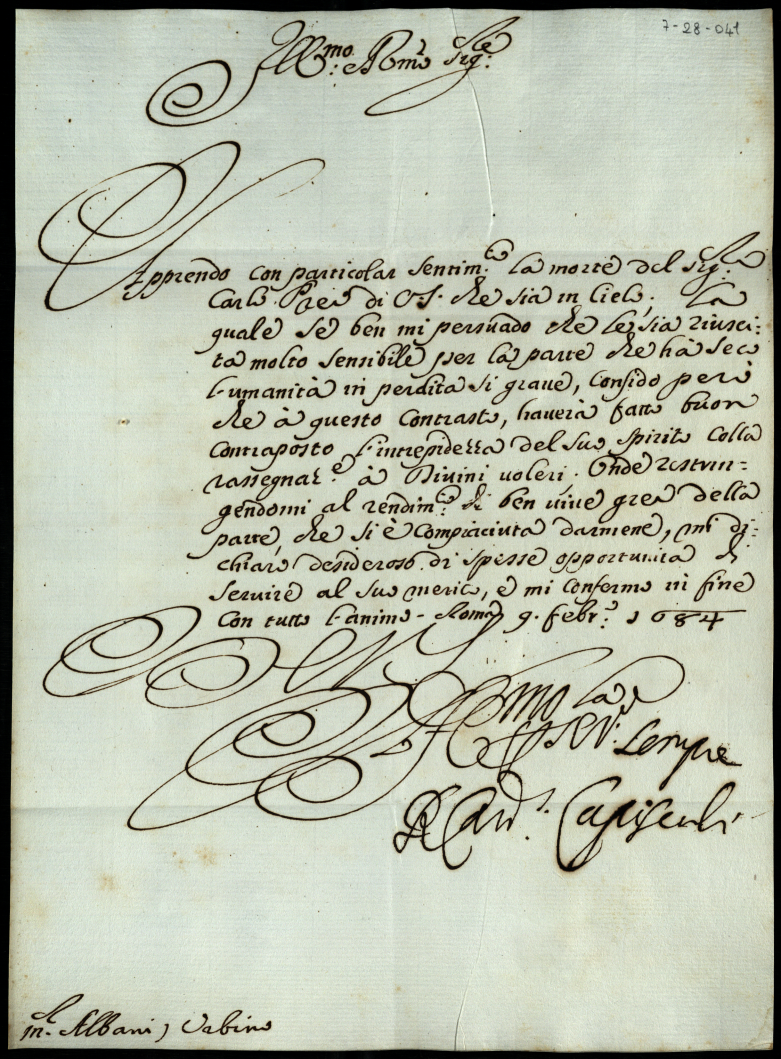 7-28-041
Ill.mo R.mo Sig.re
Apprendo con particolar sentim.to la morte del Sig.re
Carlo Pre' di V.S. che sia in Cielo; La
quale se ben mi persuado che le sia riusci-
ta molto sensibile per la parte che hà seco
l'umanità in perdita si grave, confido però
che à questo contrasto, haverà fatto buon
contraposto l'intrepidezza del suo spirito colla
rassegnaz.e à Divini voleri. Onde restrin-
gendomi al rendim.to di ben vive grazie della
parte, che si è compiaciuta darmene, mi di-
chiaro desideroso di spesse opportunità di
servire al suo merito, e mi confermo in fine
con tutto l'animo - Roma 9. febr.o 1684
Ser.r sempre
R Card. Capisucchi
m.r Albani, Urbino